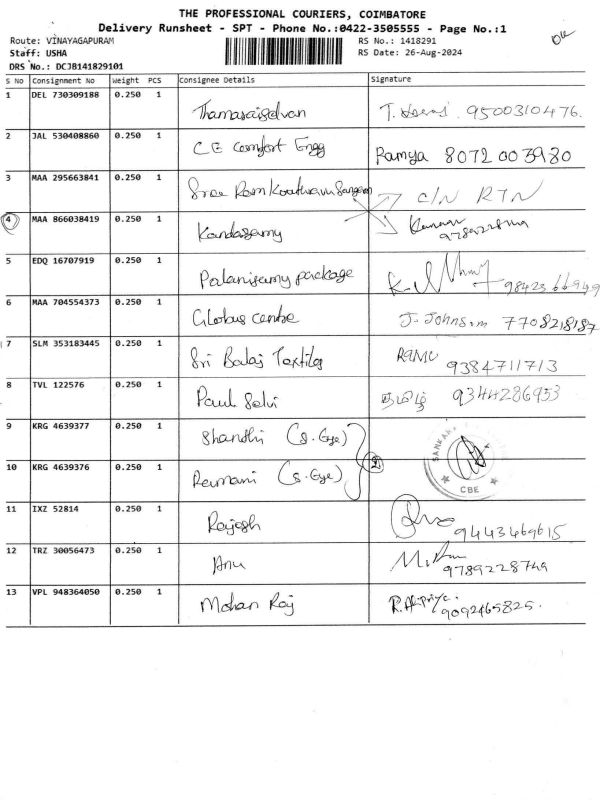 THE PROFESSIONAL COURIERS, COIMBATORE
Delivery Runsheet - SPT - Phone No.:0422-3505555 - Page No.:1
Route: VINAYAGAPURAM
Staff: USHA
DRS No.: DCJB141829101
RS No.: 1418291
RS Date: 26-Aug-2024
S No Consignment No Weight PCS Consignee Details Signature
1 DEL 730309188 0.250 1 Thamaraiselvan 9500310476.
2 JAL 530408860 0.250 1 C.E Comfort Engg Ramya 8072003980
3 MAA 295663841 0.250 1 Sree Ram C/N RTN
4 MAA 866038419 0.250 1 Kandasamy
5 EDQ 16707919 0.250 1 Palanisamy package 9842366949
6 MAA 704554373 0.250 1 Globus centre J. Johnson 7708218187
7 SLM 353183445 0.250 1 Sri Balaj Textiles RAMU 9384711713
8 TVL 122576 0.250 1 Paul Selvi தமிழ் 9344286953
9 KRG 4639377 0.250 1 Shanthi (S. Eye)
10 KRG 4639376 0.250 1 Ramani (S. Eye) 2
SANKARA
CBE
11 IXZ 52814 0.250 1 Rajesh 9443469615
12 TRZ 30056473 0.250 1 Anu 9789228749
13 VPL 948364050 0.250 1 Mohan Raj 9092465825.